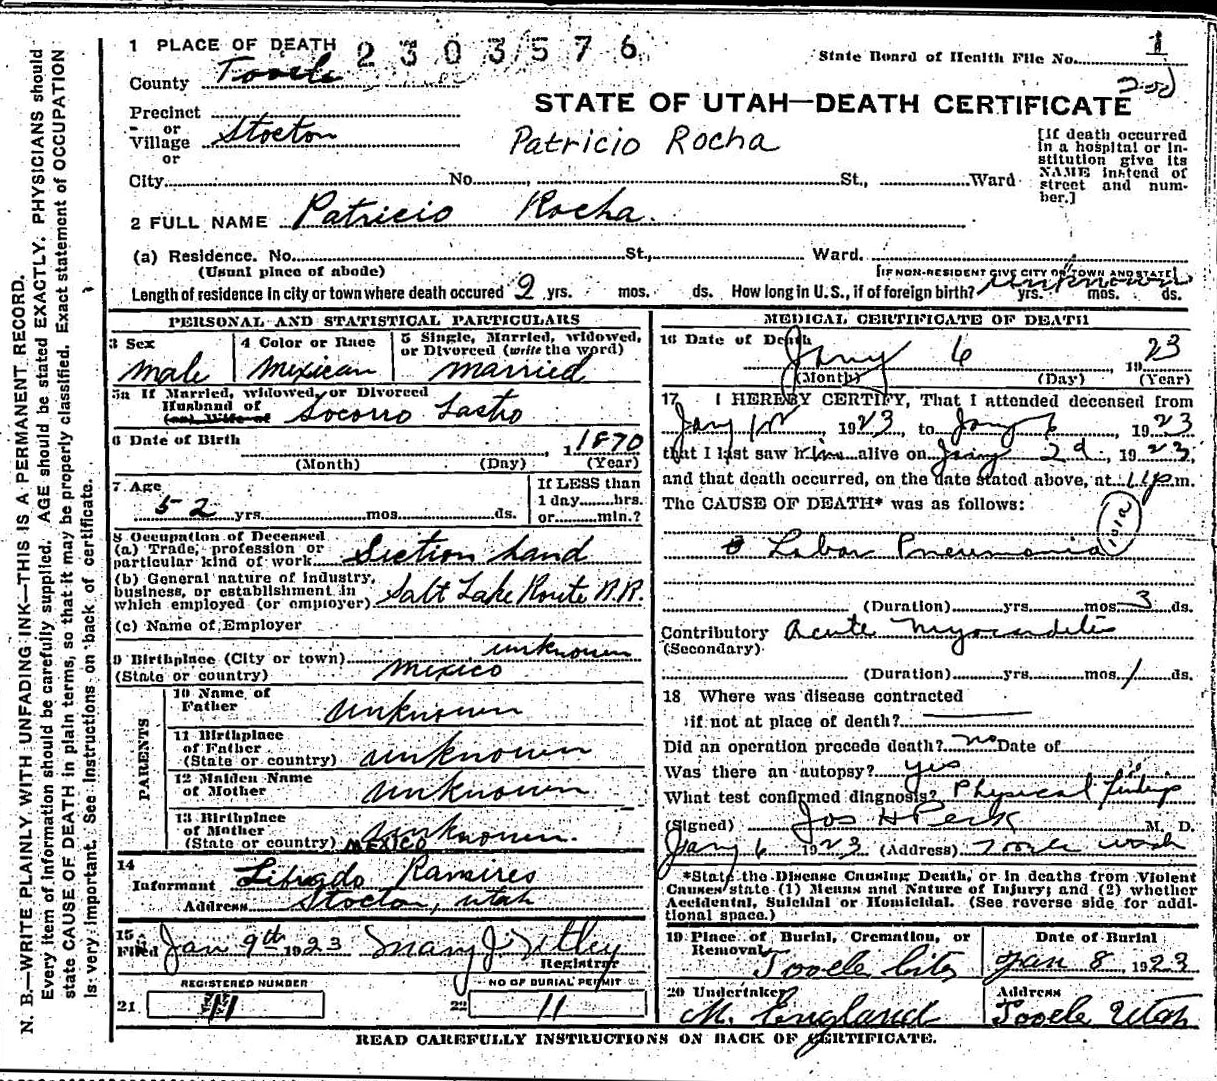 1 PLACE OF DEATH 2303576
State Board of Health File No. 1
County Tooele
STATE OF UTAH—DEATH CERTIFICATE
Precinct
or
Village Stocton
or
Patricio Rocha
[If death occurred in a hospital or institution give its NAME instead of street and number.]
City No. St., Ward
2 FULL NAME Patricio Rocha.
(a) Residence. No. St., Ward.
(Usual place of abode) [IF NON-RESIDENT GIVE CITY OR TOWN AND STATE]
Length of residence in city or town where death occured 2 yrs. mos. ds. How long in U.S., if of foreign birth? unknown yrs. mos. ds.
PERSONAL AND STATISTICAL PARTICULARS
3 Sex
male
4 Color or Race
Mexican
5 Single, Married, widowed, or Divorced (write the word)
married
5a If Married, widowed, or Divorced
Husband of
(or) Wife of Socorro Lastro
6 Date of Birth 1870
(Month) (Day) (Year)
7 Age
52 yrs. mos. ds.
If LESS than
1 day hrs.
or min.?
8 Occupation of Deceased
(a) Trade, profession or
particular kind of work Section hand
(b) General nature of industry,
business, or establishment in
which employed (or employer) Salt Lake Route R.R.
(c) Name of Employer
9 Birthplace (City or town) unknown
(State or country) Mexico
PARENTS
10 Name of
Father unknown
11 Birthplace
of Father
(State or country) unknown
12 Maiden Name
of Mother unknown
13 Birthplace
of Mother
(State or country) unknown.
MEXICO
14
Informant Librado Ramires
Address Stocton, Utah
15
Filed Jan 9th 1923
Registrar
REGISTERED NUMBER
21 11
NO OF BURIAL PERMIT
22 11
MEDICAL CERTIFICATE OF DEATH
16 Date of Death
Jany 6 1923
(Month) (Day) (Year)
17 I HEREBY CERTIFY, That I attended deceased from
Jany 1st 1923, to Jany 6, 1923
that I last saw him alive on Jany 2d, 1923,
and that death occurred, on the date stated above, at 11 p m.
The CAUSE OF DEATH* was as follows:
Lobar Pneumonia 101a
(Duration) yrs. mos. 3 ds.
Contributory Acute Myocarditis
(Secondary)
(Duration) yrs. mos. 1 ds.
18 Where was disease contracted
if not at place of death?
Did an operation precede death? no Date of
Was there an autopsy? yes
What test confirmed diagnosis? Physical findings
(Signed) Jos H Peck M. D.
Jany 6 1923 (Address) Tooele Utah
*State the Disease Causing Death, or in deaths from Violent
Causes state (1) Means and Nature of Injury; and (2) whether
Accidental, Suicidal or Homicidal. (See reverse side for additional space.)
19 Place of Burial, Cremation, or
Removal
Tooele City
Date of Burial
Jan 8, 1923
20 Undertaker
M. England
Address
Tooele Utah
READ CAREFULLY INSTRUCTIONS ON BACK OF CERTIFICATE.
N. B.—WRITE PLAINLY, WITH UNFADING INK—THIS IS A PERMANENT RECORD.
Every item of information should be carefully supplied. AGE should be stated EXACTLY. PHYSICIANS should
state CAUSE OF DEATH in plain terms, so that it may be properly classified. Exact statement of OCCUPATION
is very important. See instructions on back of certificate.